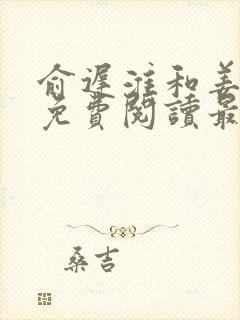 俞遲淮和姜
免費閱讀最
桑吉